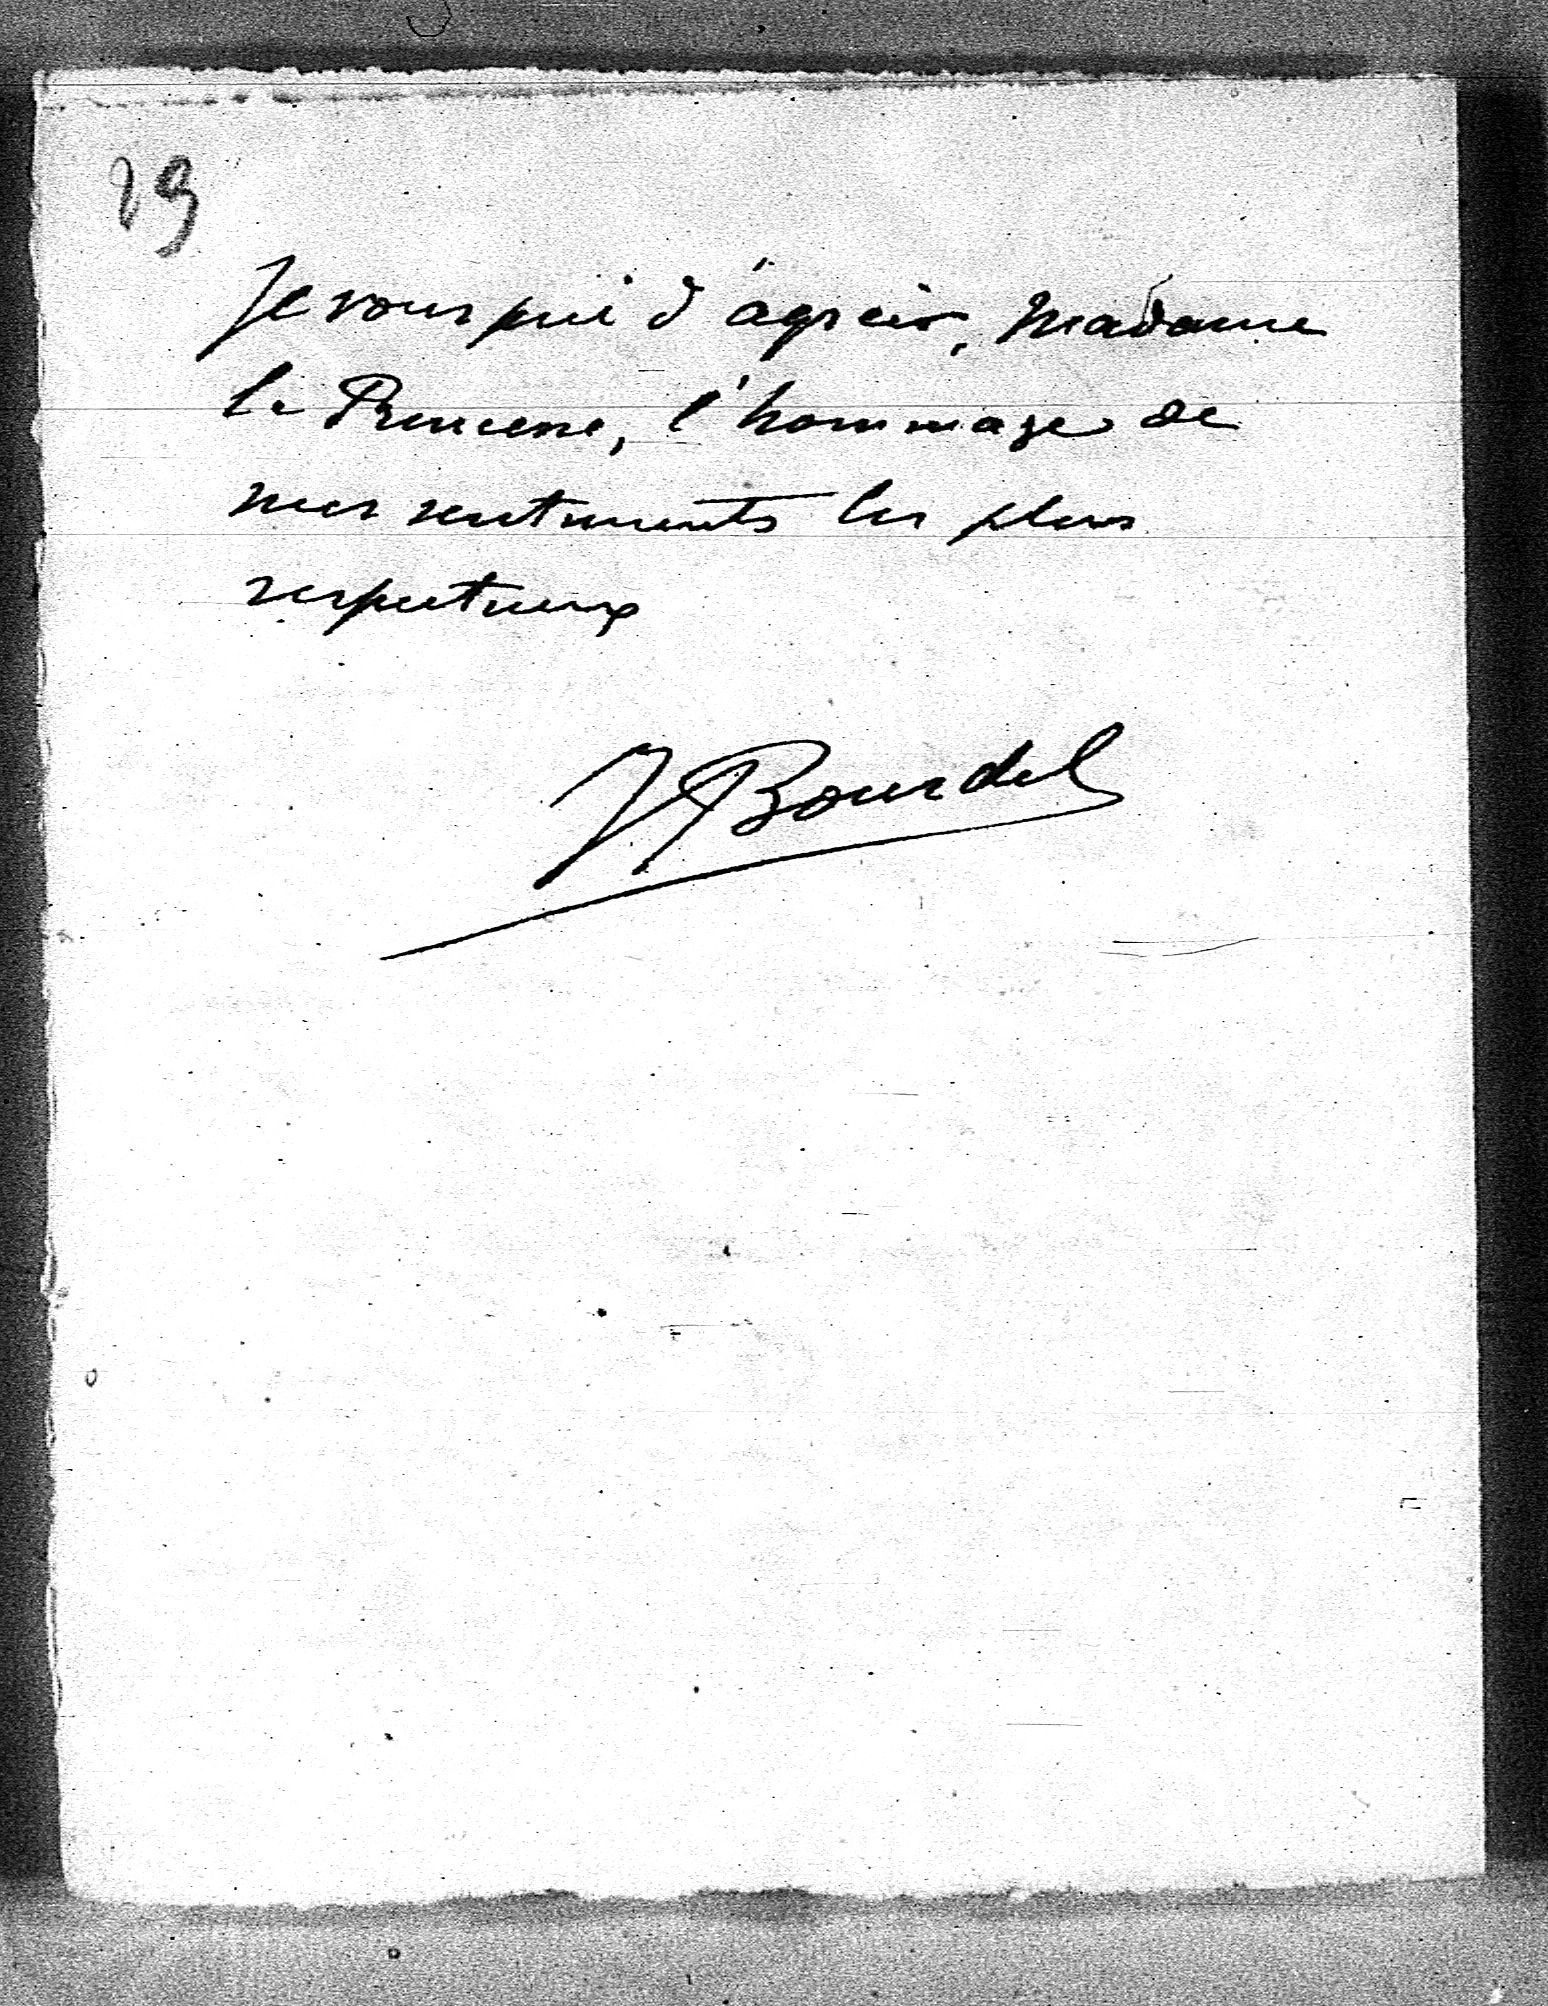 29
Je vous prie d'agréer, Madame
la Princesse, l'hommage de
mes sentiments les plus
respectueux
Bourdel